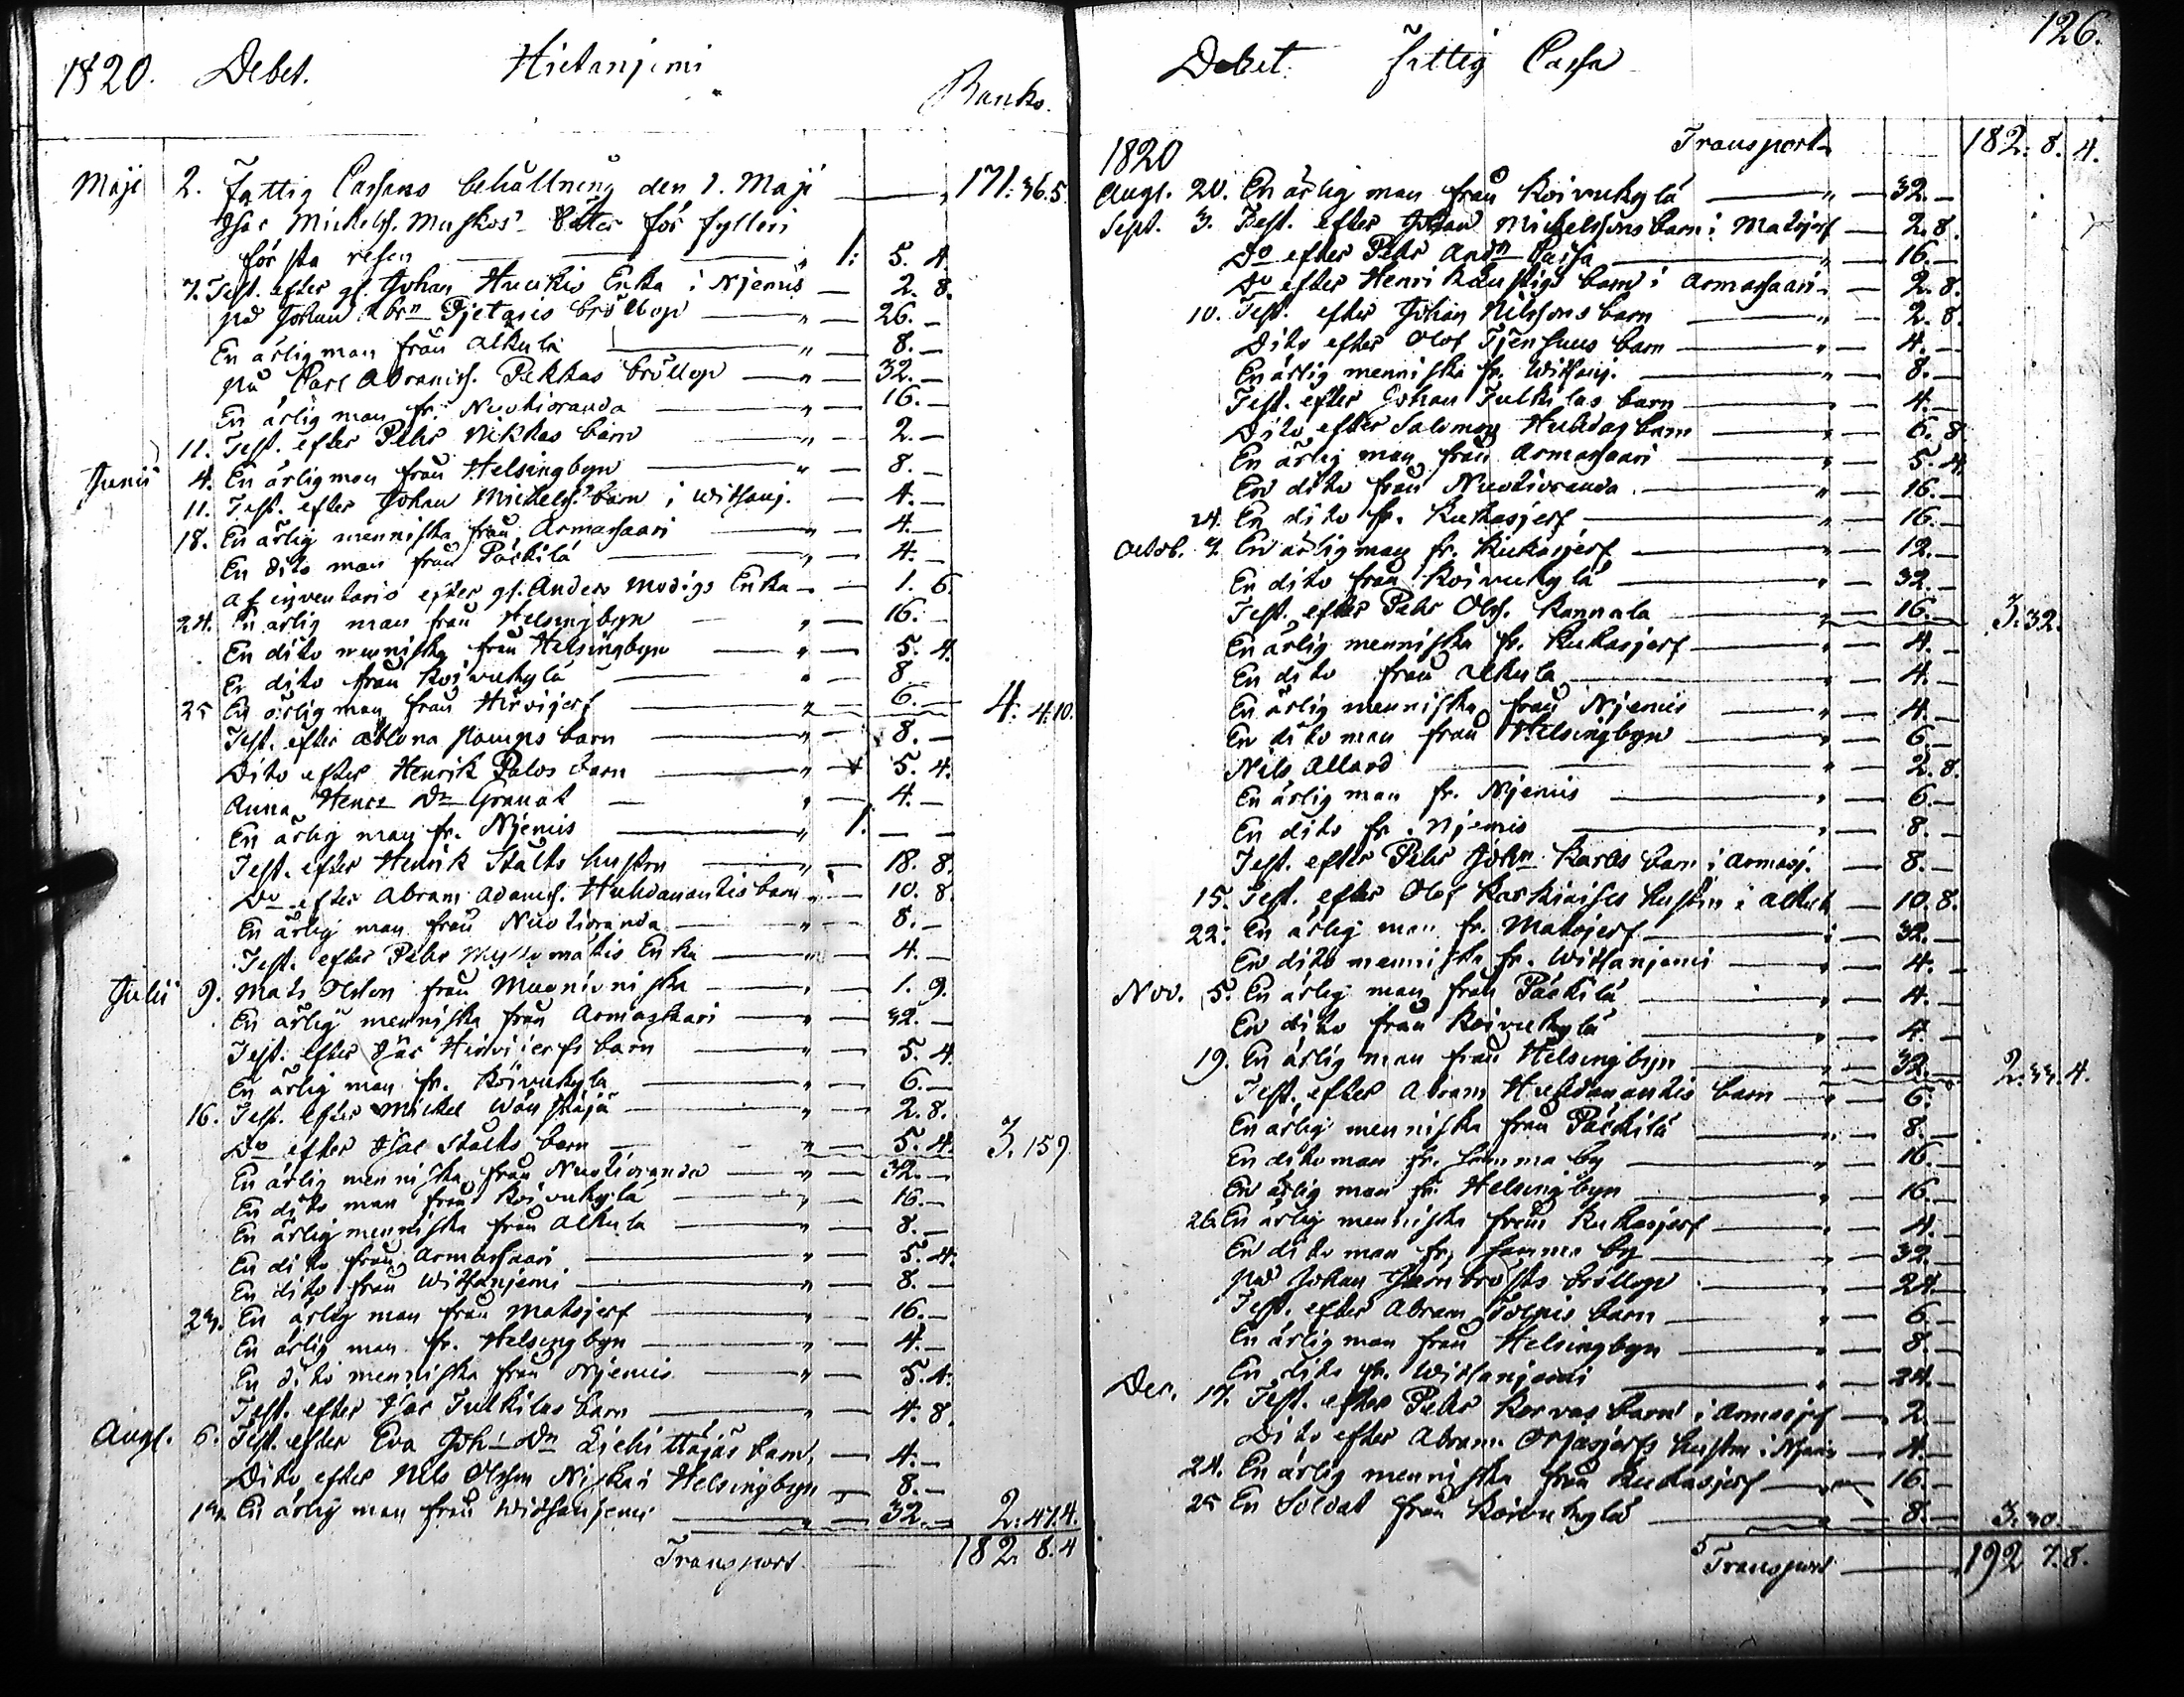 1820. Debet. Hietanjemi
Banko.
Maji 2. Fattig Cassans behållning den 1. Maji — 171. 36. 5.
Isac Michelss. Muskos böter för fylleri
första resan — 1: 5. 4.
7. Test. efter gl. Johan Huukis Enka i Njemis — 2. 8.
på Johan Abrn Pjetaris bröllop — 26. —
En ärlig man från Alkula — 8. —
på Carl Abramss. Pekkas bröllop — 32. —
En ärlig man fr. Nuotioranda — 16. —
11. Test. efter Pehr Vekkas barn — 2. —
Junii 4. En ärlig man från Helsingbyn — 8. —
11. Test. efter Johan Michelss. barn i Witsanj. — 4. —
18. En ärlig menniska från Armassaari — 4. —
En dito man från Päckilä — 4. —
af inventario efter gl. Anders Modigs Enka — 1. 6.
24. En ärlig man från Helsingbyn — 16. —
En dito menniska från Helsingbyn — 5. 4.
En dito från Koivukylä — 8
25 En ärlig man från Hirvijerf — 6. — 4. 4. 10.
Test. efter barn — 8. —
Dito efter Henrik Palos barn — 5. 4.
Anna Henr. Dr Granat — 4. —
En ärlig man fr. Njemis — 1. — —
Test. efter Henrik Stålts hustru — 18. 8.
Do efter Abram Adamss. Huhdanantis barn — 10. 8.
En ärlig man från Nuotioranda — 8. —
Test. efter Pehr Myllymakis Enka — 4. —
Julii 9. Mats Olsson från Muoniniska — 1. 9.
En ärlig menniska från Armassaari — 32. —
Test. efter Isac Hirvijerfs barn — 5. 4.
En ärlig man fr. Koivukylä — 6. —
16. Test. efter Mickel — 2. 8.
Do efter Isac Stålts barn — 5. 4. 3. 15 9
En ärlig menniska från Nuotioranda — 32. —
En dito man från Koivukylä — 16. —
En ärlig menniska från Alkula — 8. —
En dito från Armassaari — 5. 4.
En dito från Witsanjemi — 8. —
23. En ärlig man från Matojerf — 16. —
En ärlig man fr. Helsingbyn — 4. —
En dito menniska från Njemis — 5. 4.
Test. efter Isac Tulkilas barn — 4. 8.
Augt. 6. Test. efter Eva Joh. Dr barn — 4. —
Dito efter Nils Olsson Niska i Helsingbyn — 8. —
13. En ärlig man från Witsanjemi — 32. — 2: 47. 4.
Transport — 182. 8. 4
126.
Debet. Fattig Cassa
1820 Transport 182. 8. 4.
Augt. 20. En ärlig man från Koivukylä — 32. —
Sept. 3. Test. efter Johan Michelssons barn i Matojerf — 2. 8.
Do efter Pehr Andn — 16. —
Do efter Henrik barn i Armassaari — 2. 8.
10. Test. efter Johan Nilssons barn — 2. 8.
Dito efter Olof barn — 4. —
En ärlig menniska fr. Witsanj. — 8. —
Test. efter Johan Tulkilas barn — 4. —
Dito efter Salomon Huhdas barn — 6. 8
En ärlig man från Armassaari — 5. 4.
En dito från Nuotioranda — 16. —
24. En dito fr. Kukasjerf — 16. —
Octob. 7. En ärlig man fr. Kukasjerf — 12. —
En dito från Koivukylä — 32. —
Test. efter Pehr Olss. Kannala — 16. — 3. 32.
En ärlig menniska fr. Kukasjerf — 4. —
En dito från Alkula — 4. —
En ärlig menniska från Njemis — 4. —
En dito man från Helsingbyn — 6. —
Nils Allard — 2. 8.
En ärlig man fr. Njemis — 6. —
En dito fr. Njemis — 8. —
Test. efter Pehr John barn i Armasj. — 8. —
15. Test. efter Olof hustru i Alkula — 10. 8.
22. En ärlig man fr. Matojerf — 32. —
En dito menniska fr. Witsanjemi — 4. —
Nov. 5. En ärlig man från Päckilä — 4. —
En dito från Koivukylä — 4. —
19. En ärlig man från Helsingbyn — 32. — 2. 33. 4.
Test. efter Abram Huhdanantis barn — 6. —
En ärlig menniska från Päckilä — 8. —
En dito man fr. samma by — 16. —
En ärlig man fr. Helsingbyn — 16. —
26. En ärlig menniska från Kukasjerf — 4. —
En dito man fr. samma by — 32. —
på Johan bröllop — 24. —
Test. efter Abram Tolpis barn — 6. —
En ärlig man från Helsingbyn — 8. —
En dito fr. Witsanjemi — 24. —
Dec. 17. Test. efter Pehr Korvas barn i Armasjerf — 2. —
Dito efter Abram Orjasjerfs hustru i Njemis — 4. —
24. En ärlig menniska från Kukasjerf — 16. —
25 En Soldat från Koivukylä — 8. — 3. 30. —
Transport — 192 7. 8.